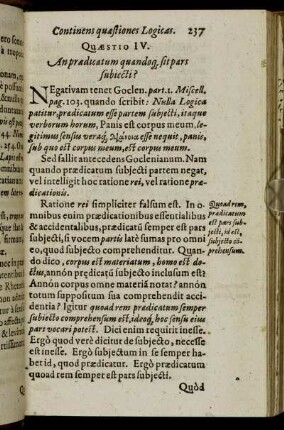 Continens quæstiones Logicas. 237
QUÆSTIO IV.
An prædicatum quandoq; sit pars
subiecti?
NEgativam tenet Goclen. part. 1. Miscell.
pag. 103. quando scribit: Nulla Logica
patitur, prædicatum esse partem subjecti, itaque
verborum horum, Panis est corpus meum, legitimus
sensus esse nequit, panis,
sub quo est corpus meum, est corpus meum.
Sed fallit antecedens Goclenianum. Nam
quando prædicatum subjecti partem negat,
vel intelligit hoc ratione rei, vel ratione prædicationis.
Ratione rei simpliciter falsum est. In omnibus
enim prædicationibus essentialibus
& accidentalibus, prædicatũ semper est pars
subjecti, si vocem partis latè sumas pro omni
eo, quod subjecto comprehenditur. Quando
dico, corpus est materiatum, homo est doctus,
annõn prędicatũ subjecto inclusum est?
Annón corpus omne materiã notat? annón
totum suppositum sua comprehendit accidentia?
Igitur quod rem prædicatum semper
subjecto comprehensum est, ideoq; hoc sensu ejus
pars vocari potest. Dici enim requirit inesse.
Ergò quod verè dicitur de subjecto, necesse
est inesse. Ergò subjectum in se semper habet
id, quod prædicatur. Ergò prædicatum
quoad rem semper est pars subjecti.
Quòd
Quoad rem,
prædicatum
est pars subjecti,
id est,
subjecto comprehensum.